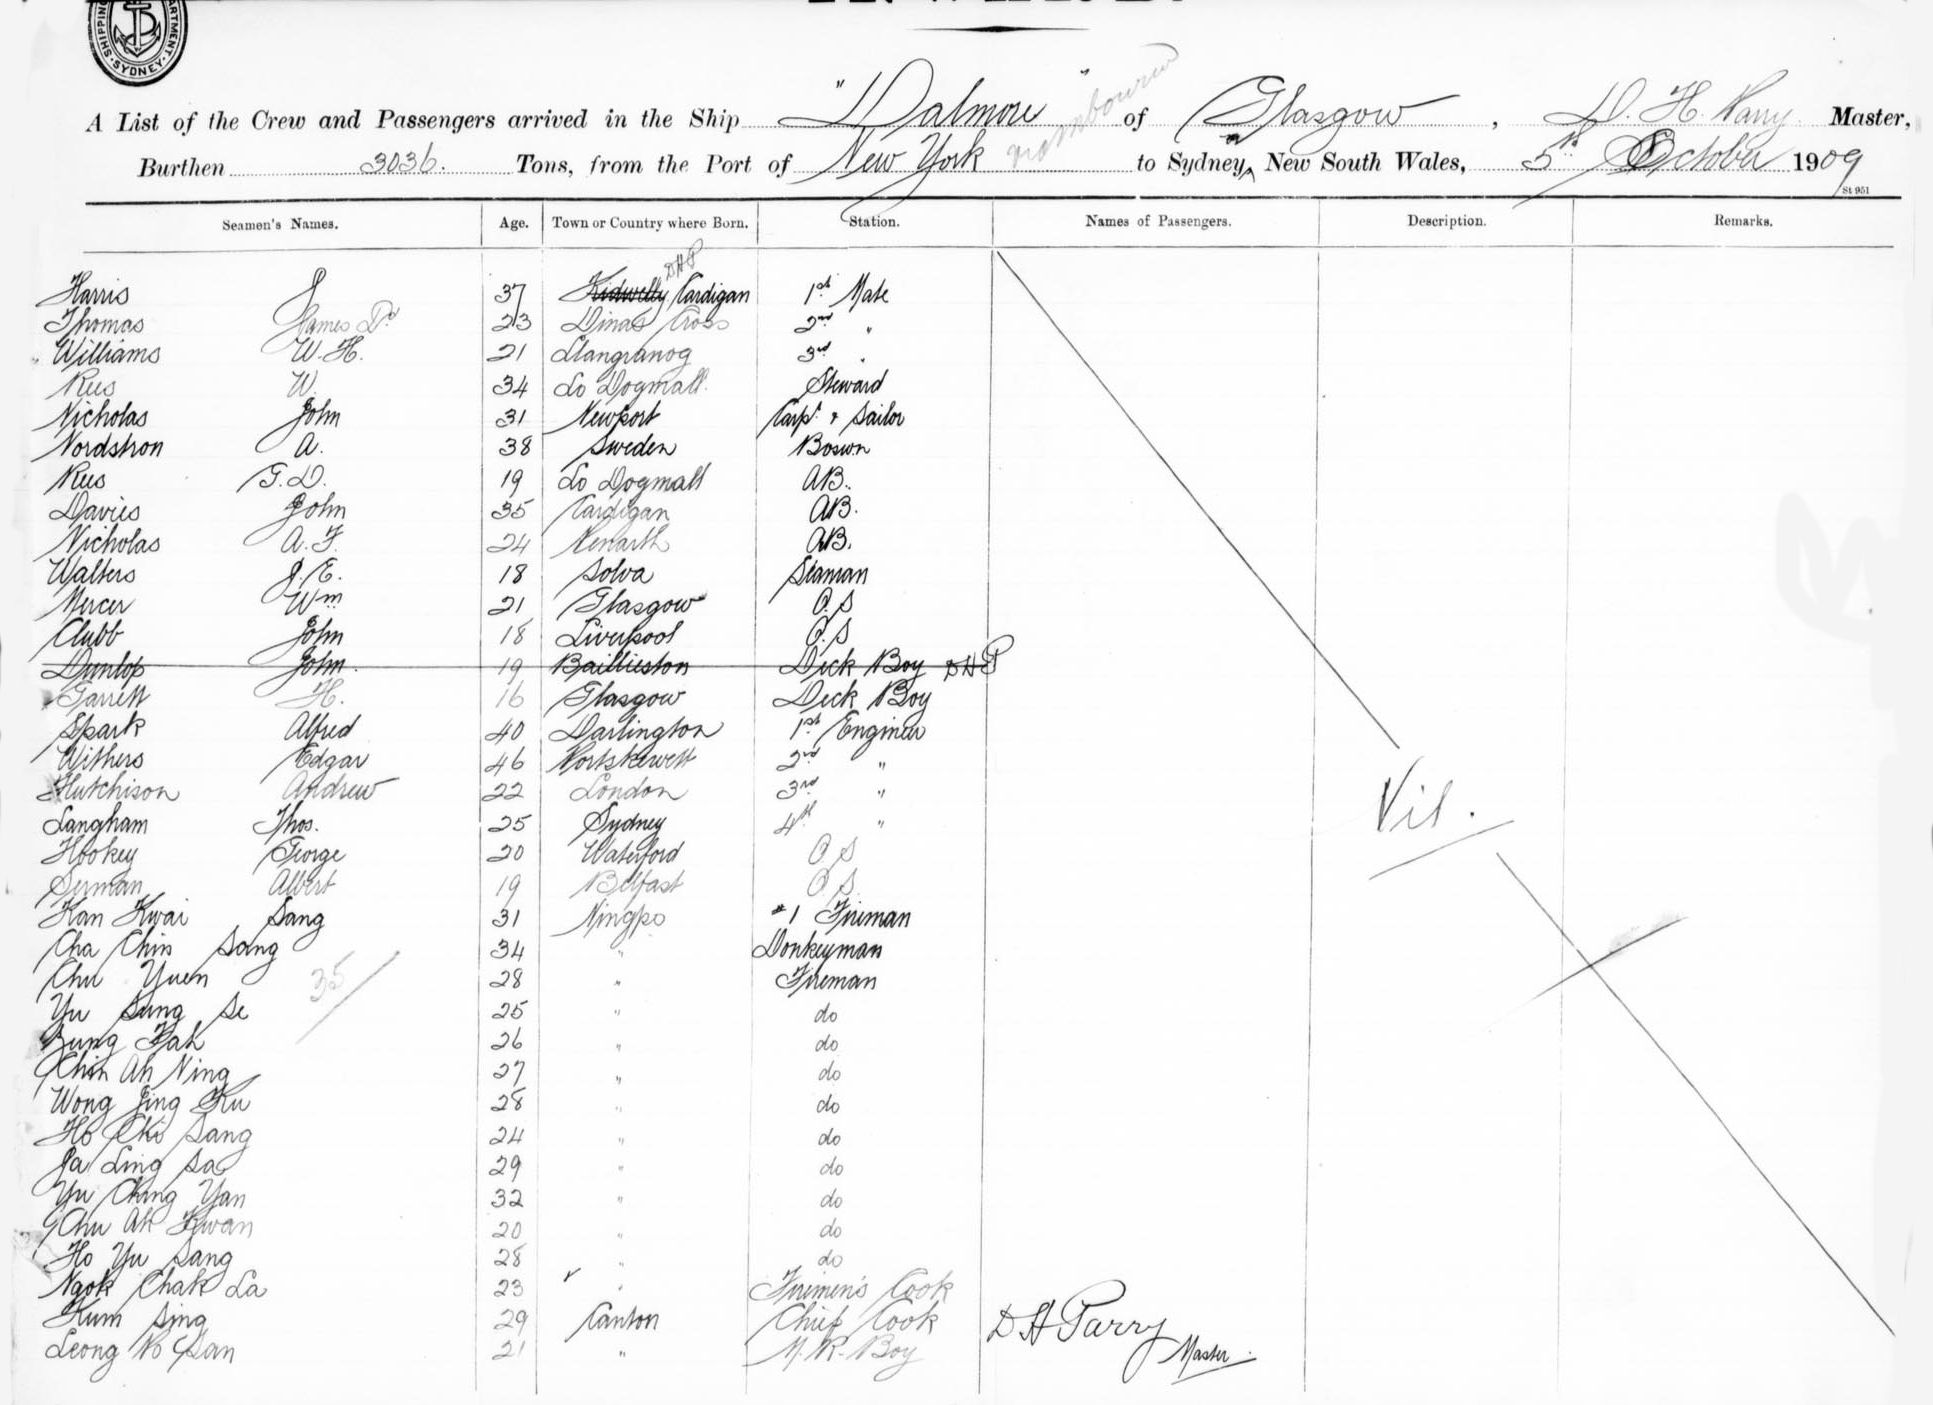 SHIPPING DEPARTMENT. SYDNEY.
A List of the Crew and Passengers arrived in the Ship "Dalmore" of Glasgow, D. H. Parry Master,
Burthen 3036. Tons, from the Port of New York via Melbourne to Sydney, New South Wales, 5th October 1909
St 951
Seamen's Names. Age. Town or Country where Born. Station. Names of Passengers. Description. Remarks.
DHP
Harris J 37 Kidwelly Cardigan 1st Mate
Thomas James Dd 23 Dinas Cross 2nd "
Williams W. H. 21 Llangranog 3rd "
Rees W. 34 St Dogmall. Steward
Nicholas John 31 Newport Carpr & Sailor
Nordstron A. 38 Sweden Boswn
Rees G. D. 19 St Dogmall AB.
Davies John 35 Cardigan AB.
Nicholas A. F. 24 Kenarth AB.
Walters J. E. 18 Solva Seaman
Mercer Wm 21 Glasgow O. S
Clubb John 18 Liverpool O. S
Dunlop John. 19 Baillieston Deck Boy DHP
Garrett H. 16 Glasgow Deck Boy
Spark Alfred 40 Darlington 1st Engineer
Withers Edgar 46 Portskewett 2nd "
Hutchison Andrew 22 London 3rd "
Nil.
Langham Thos. 25 Sydney 4th "
Hookey George 20 Waterford O S
Serman Albert 19 Belfast O S.
Kan Kwai Sang 31 Ningpo #1 Fireman
Cha Chin Sang 34 " Donkeyman
Chu Yuen 28 " Fireman
35/
Yu Sung Se 25 " do
Fah 26 " do
Chin Ah Ning 27 " do
Wong Jing Ku 28 " do
Ho Chi Sang 24 " do
Ja Ling Sa 29 " do
Yu Ching Yan 32 " do
Chu Ah Kwan 20 " do
Ho Yu Sang 28 " do
Ngok Chak La 23 " Firemen's Cook
Kum Sing 29 Canton Chief Cook
D H Parry
Master.
Leong No San 21 " M. R. Boy